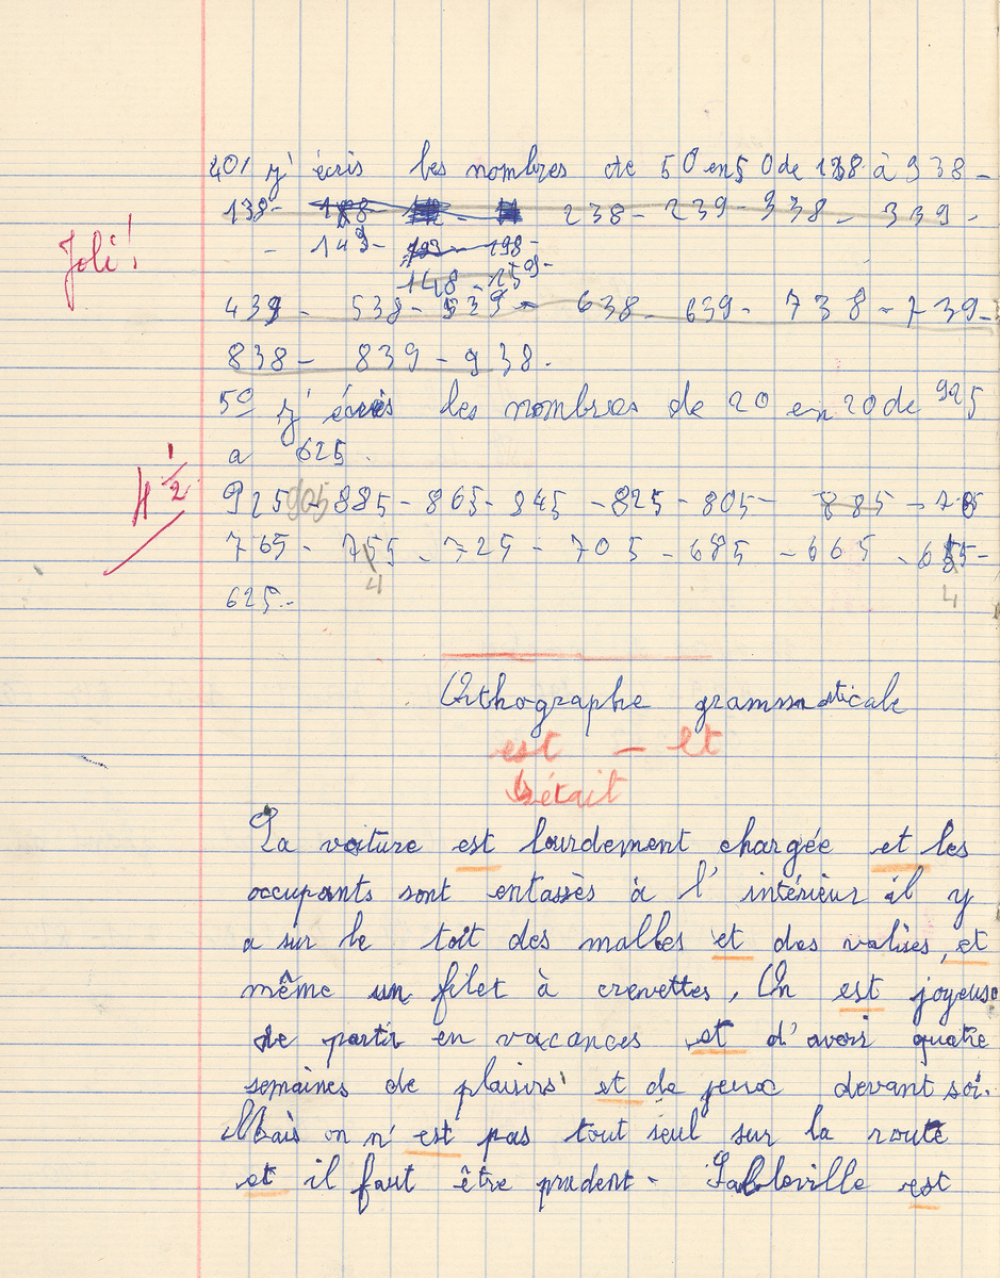 40/ j'écris les nombres de 50 en 50 de 138 à 938 -
138- 188- 238- 239- 338- 339-
Joli!
- 149- 193- 198-
148- 159-
439- 538- 539- 638- 639- 738- 739-
838- 839- 938.
5º j'écris les nombres de 20 en 20 de 925
a 625.
4 1/2
925 905 885- 865- 845- 825- 805- 885-
765- 755- 725- 705- 685- 665- 655-
4 4
625.-
Orthographe grammaticale
est - et
était
La voiture est lourdement chargée et les
occupants sont entassès à l'intérieur il y
a sur le toit des malles et des valises, et
même un filet à crevettes, On est joyeuse
de partir en vacances et d'avoir quatre
semaines de plaisirs et de jeux devant soi.
Mais on n'est pas tout seul sur la route
et il faut être prudent- Sableville est